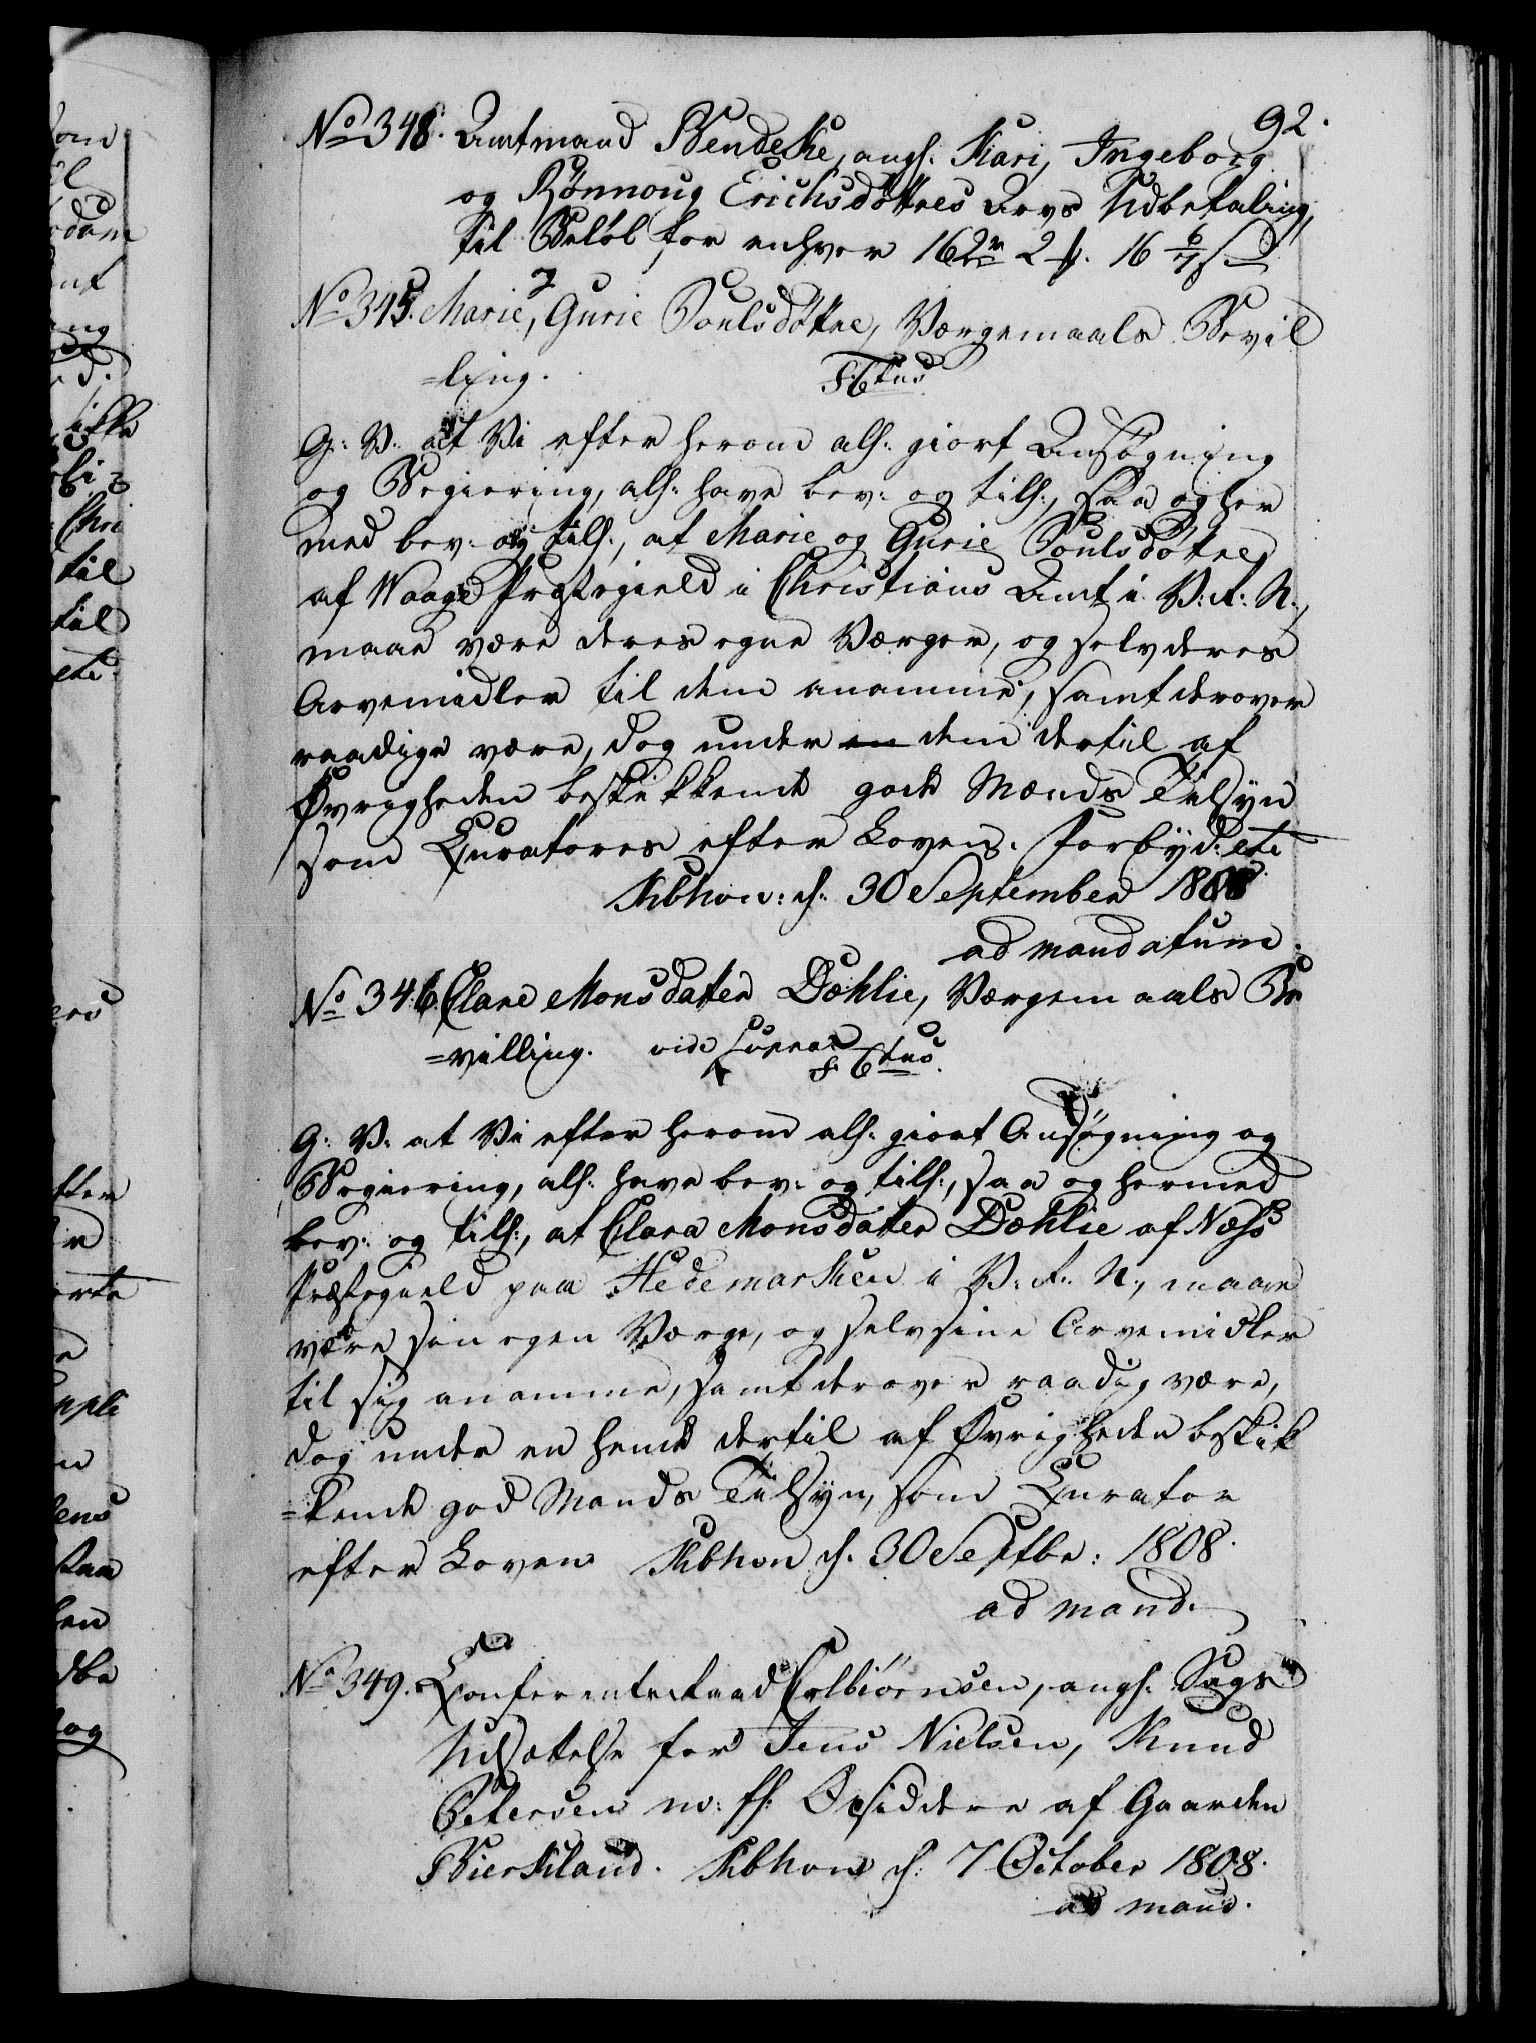 92.
No 348. Amtmand Bendeke, angh. Kari, Ingeborg
og Rönnoug Erichsdöttres Arvs Udbetaling,
til Beløb for enhver 162 rd 2 f. 16 6/7 s
No 345. Marie, Gurie Poulsdöttre, Værgemaals Bevil
=ling.
G: V: at Vi efter herom alh: giort Ansøgning
og Begiering, alh: have bev: og tilh:, saa og her
med bev: og tilh:, at Marie og Gurie Poulsdöttre
af Waage Præstegield i Christians Amt i V: R: N:,
maae være deres egne Værger, og selv deres
Arvemidler til dem anamme, samt derover
raadige være, dog under dem dertil af
Øvrigheden beskikkende gode Mænds Tilsyn
som Curatores efter Loven. Forbyd: etc
Kbhvn: d: 30 September 1808
ad mandatum.
No 346. Clare Monsdatter Dæhlie, Værgemaals Be
=villing. vide Supra
G: V: at Vi efter herom alh: giort Ansøgning og
Begiering, alh: have bev: og tilh:, saa og hermed
bev: og tilh:, at Clara Monsdatter Dæhlie af Næss
Præstegield paa Hedemarken i V: R: N:, maae
være sin egen Værge, og selv sine Arvemidler
til sig anamme, samt derover raadig være,
dog under en hende dertil af Øvrigheden beskik
=kende god Mands Tilsyn, som Curator
efter Loven Kbhvn d. 30 Septbr: 1808.
ad mand.
No 349. Conferentsraad Colbiörnsen, angh. Sags
Udsættelse for Jens Nielsen, Knud
Petersen m: fl: Opsiddere af Gaarden
Bierkland. Kbhvn d: 7 October 1808.
ad mand.